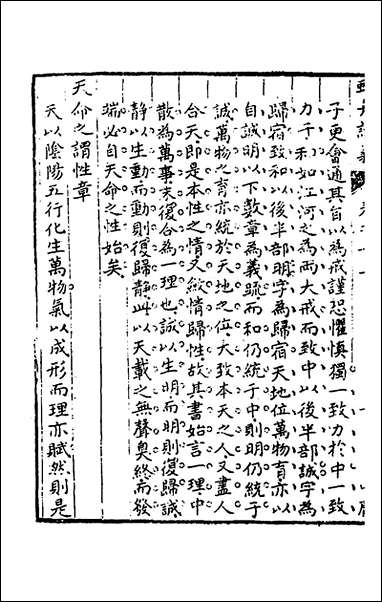 子更會通其旨以爲戒謹恐懼慎獨一致力於中一致
力于和如江河之爲兩大戒而致中以後半部誠字爲
歸宿致和以後半部明字爲歸宿天地位萬物育亦以
自誠明以下數章爲義疏而和仍統于中則明仍統于
誠萬物之育亦統於天地之位天致本天之人又盡人
合天即是本性之情又斂情歸性故其書始言一理中
散爲萬事末復合爲一理也誠以生明而明則復歸誠
靜以生動而動則復歸靜此以天載之無聲臭終而發
端必自天命之性始矣
天命之謂性章
天以陰陽五行化生萬物氣以成形而理亦賦然則是